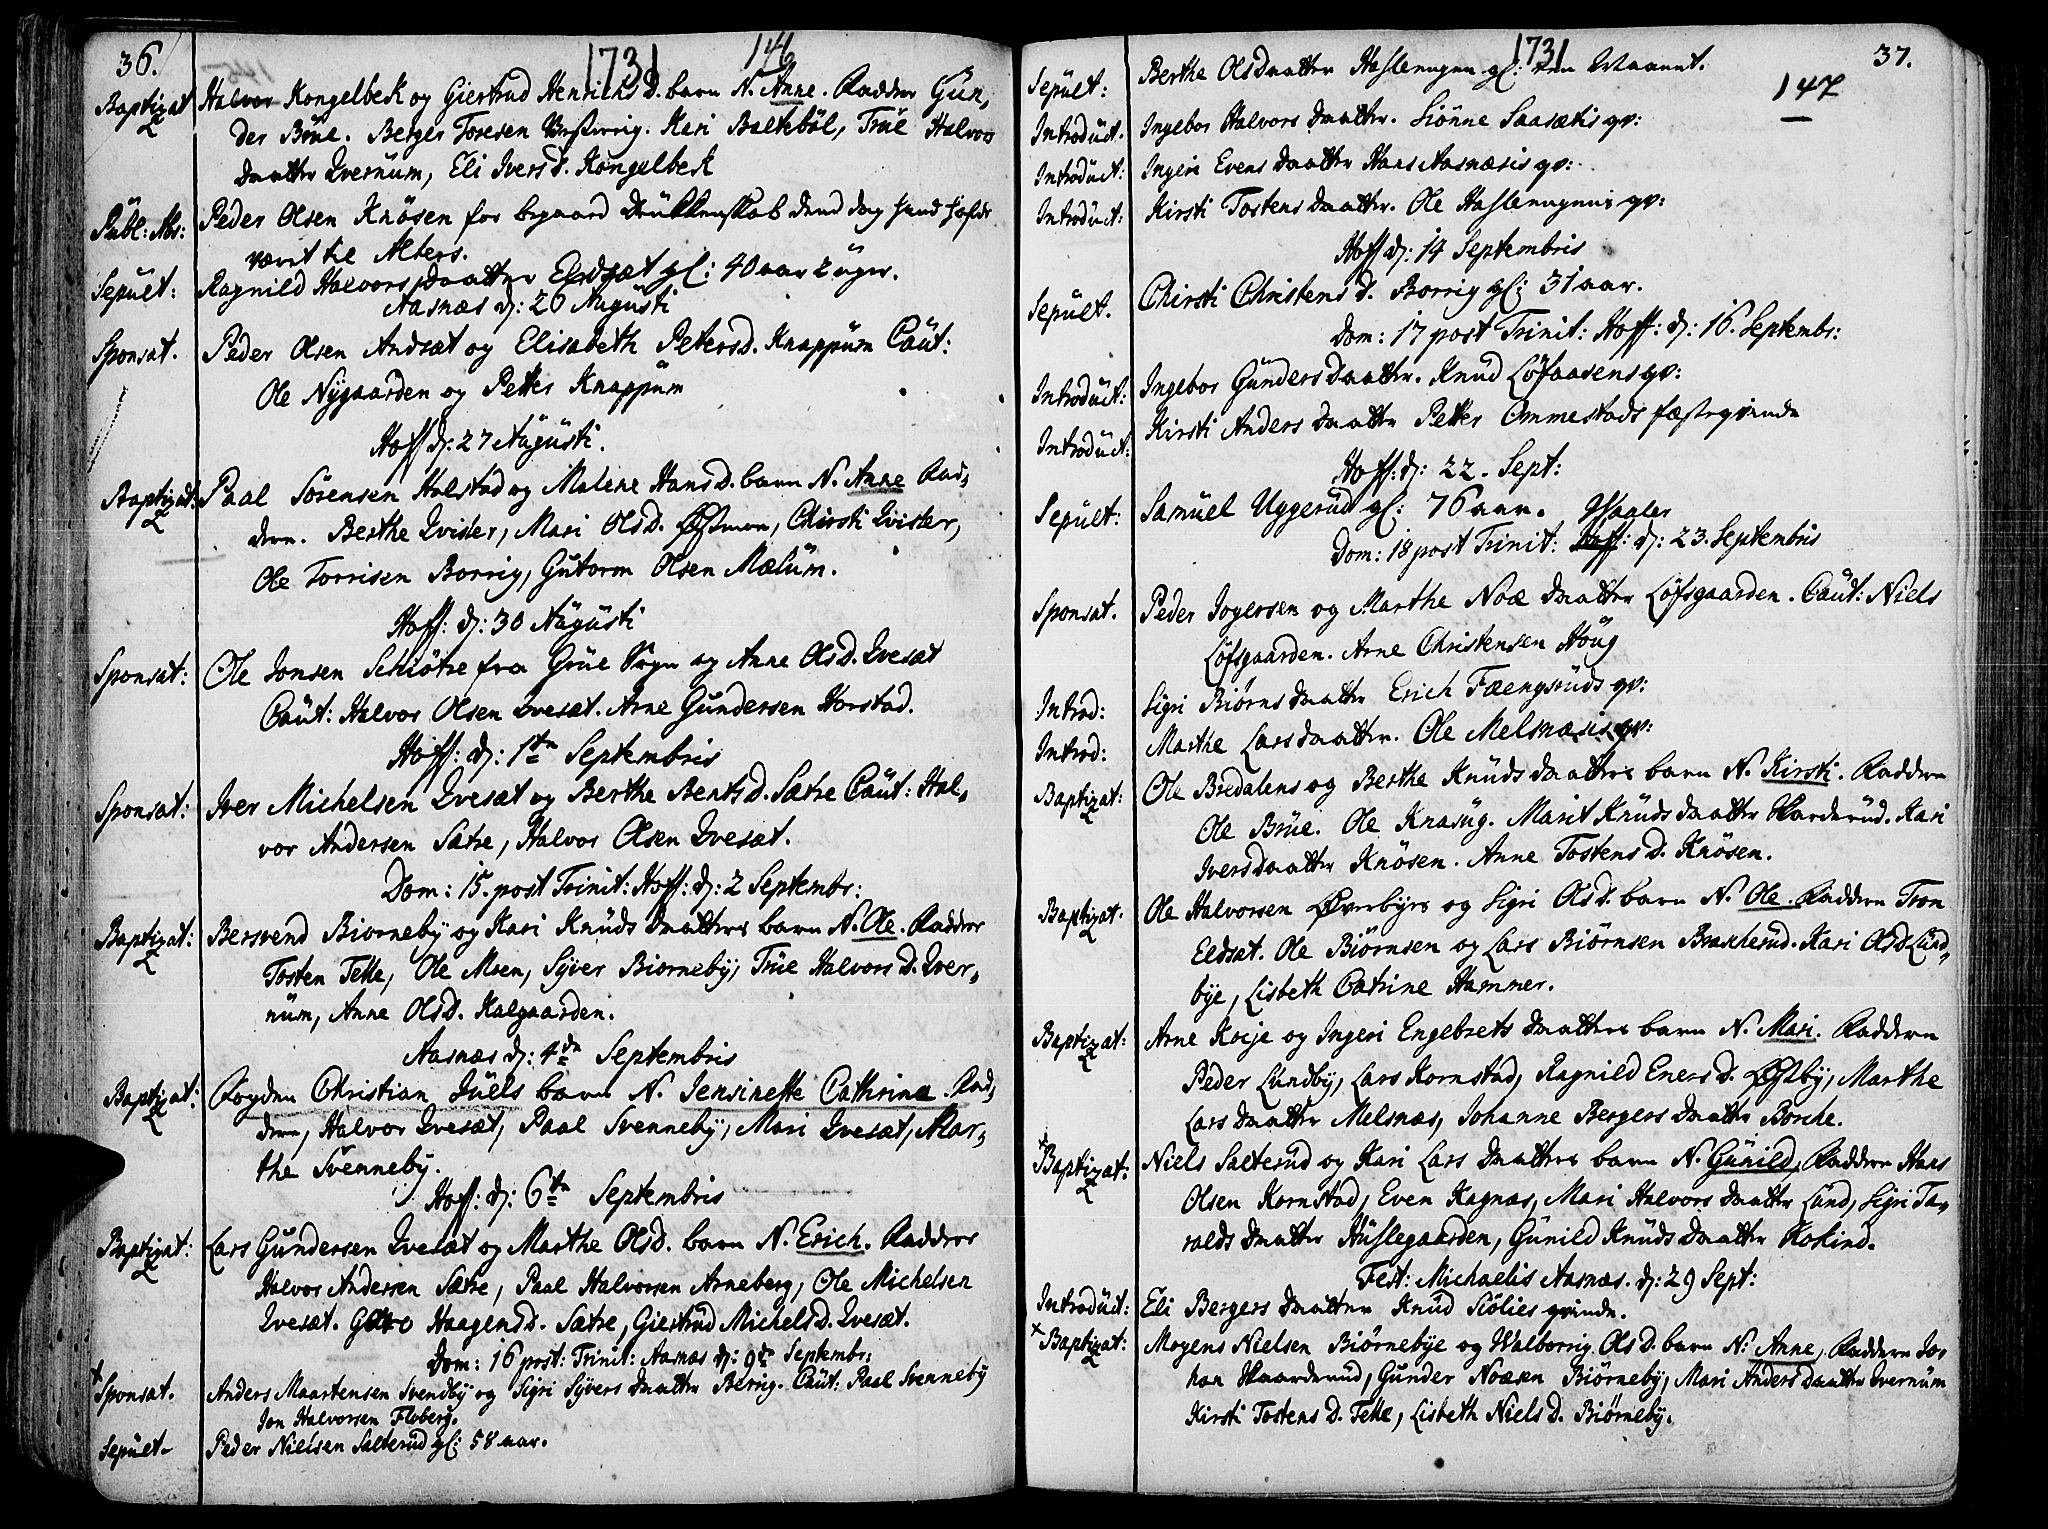 36.
1731
146
Baptizat Halvor Kongelbek og Giertrud Henrichs D. barn N. Anne. Faddere Gun-
der Brüe. Berger Toresen Kari Balteböl, Trüe Halvors
Daatter Ivernum, Eli Ivers D. Kongelbek
Publ: Abs: Peder Olsen Knösen for begaaed Drükkenskab dend dag hand hafde
været til Alters.
Sepult: Ragnild Halvors Daatter Eldsæt gl: 40 aar 2 uger.
Aasnæs d: 26 Augusti
Sponsat. Peder Olsen Andsæt og Elisabeth Peters D. Knappum Caut:
Ole Nygaarden og Petter Knappum
Hoff d: 27 Augusti.
Baptizat: Paal Sörensen Holstad og Malene Hans D. barn N. Anne Fad-
dere. Berthe Qvister, Mari Ols D. Østmoen, Chirsti Qvister,
Ole Torrisen Borrig, Gutorm Olsen Mælum.
Hoff: d: 30 Augusti
Sponsat: Ole Jonsen Schiötre fra Grue Sogn og Anne Ols D. Qvesæt
Caut: Halvor Olsen Qvesæt. Arne Gundersen Horstad.
Hoff: d: 1te Septembris
Sponsat: Iver Michelsen Qvesæt og Berthe Bents D. Sætre Caut: Hal-
vor Andersen Sætre, Halvor Olsen Qvesæt.
Dom: 15. post Trinit: Hoff: d: 2 Septembr:
Baptizat: Bersvend Biorneby og Kari Knüds Daatters barn N. Ole. Faddere
Tosten Tette, Ole Moen, Syver Biorneby, Trüe Halvors D. Iver-
num, Anne Ols D. Kalgaarden.
Aasnæs d: 4de Septembris
Baptizat: Fogden Christian Juels barn N. Jensinette Cathrina. Fad-
dere, Halvor Qvesæt, Paal Svenneby, Mari Qvesæt, Mar-
the Svenneby.
Hoff: d: 6te Septembris
Baptizat: Lars Gundersen Qvesæt og Marthe Ols D. barn N. Erich. Faddere
Halvor Andersen Sætre, Paal Halvorsen Arneberg, Ole Michelsen
Qvesæt. Goro Haagens D. Sætre, Giertrud Michels D. Qvesæt.
Dom: 16 post: Trinit: Aasnæs d: 9de Septembr:
Sponsat. Anders Maartensen Svendby og Sigri Syvers Daatter Berrig. Caut: Paal Svenneby
Jon Halvorsen Floberg.
Sepult. Peder Nielsen Salterud gl: 58 aar.
1731
37.
147
Sepult: Berthe Ols Daatter Haslerngen gl: een Maanet.
Introduct. Ingebor Halvors Daatter. Siönne Saasætis qv:
Introduct: Ingeri Evens Daatter Hans Aasnæsis qv:
Introduct: Kirsti Tostens Daatter. Ole qv:
Hoff d: 14 Septembris
Sepult. Chirsti Christens D. Borrig gl: 31 aar.
Dom: 17 post Trinit: Hoff: d: 16. Septembr:
Introduct: Ingebor Günders Daatter. Knud Löfaasens qv:
Introduct: Kirsti Anders Daatter Petter Ommestads fæsteqvinde
Hoff: d: 22. Sept:
Sepult: Samuel Uggerud gl: 76 aar.
Vaaler
Dom: 18 post Trinit: Hoff: d: 23. Septembris
Sponsat. Peder Jogersen og Marthe Noæ Daatter Löfsgaarden. Caut: Niels
Löfsgaarden. Arne Christensen Houg
Introd: Sigri Biörns Daatter Erich Fæengsruds qv:
Introd: Marthe Lars daatter. Ole Melsnæsis qv:
Baptizat: Ole Bredalens og Berthe Knüds daatters barn N. Kirsti. Faddere
Ole Brüe. Ole Knasug. Marit Knüds daatter Skarderud. Kari
Ivers daatter Knösen. Anne Tostens D. Knösen.
Baptizat. Ole Halvorsen Øverbyes og Sigri Ols D. barn N. Ole. Faddere Tron
Eldsæt. Ole Biörnsen og Lars Biörnsen Brascherud. Kari Ols D. Lund-
bye, Lisbeth Catrine Hammer.
Baptizat: Arne Kveje og Ingeri Engebrets Daatters barn N. Mari. Faddere
Peder Lundby, Lars Kornstad, Ragnild Eners D. Østby, Marthe
Lars Daatter Melsnæs, Johanne Bergers Daatter Borche.
Baptizat. Niels Salterud og Kari Lars Daatters barn N. Gunild, Faddere Hans
Olsen Kornstad, Even Kagnæs, Mari Halvors Daatter Lund, Sigri Ta-
ralds Daatter Huslegaarden, Gunild Knüds Daatter Koskind.
Fest: Michaelis Aasnæs. d: 29 Sept:
Introduct: Eli Bergers Daatter Knud Siölies qvinde.
Baptizat: Mogens Nielsen Biörnebye og Walborrig Ols D. barn N: Anne. Faddere Jo-
han Skaarderud, Gunder Noæsen Biörneby, Mari Anders daatter Ivernum
Kirsti Tostens D. Tette, Lisbeth Niels D. Biörneby.